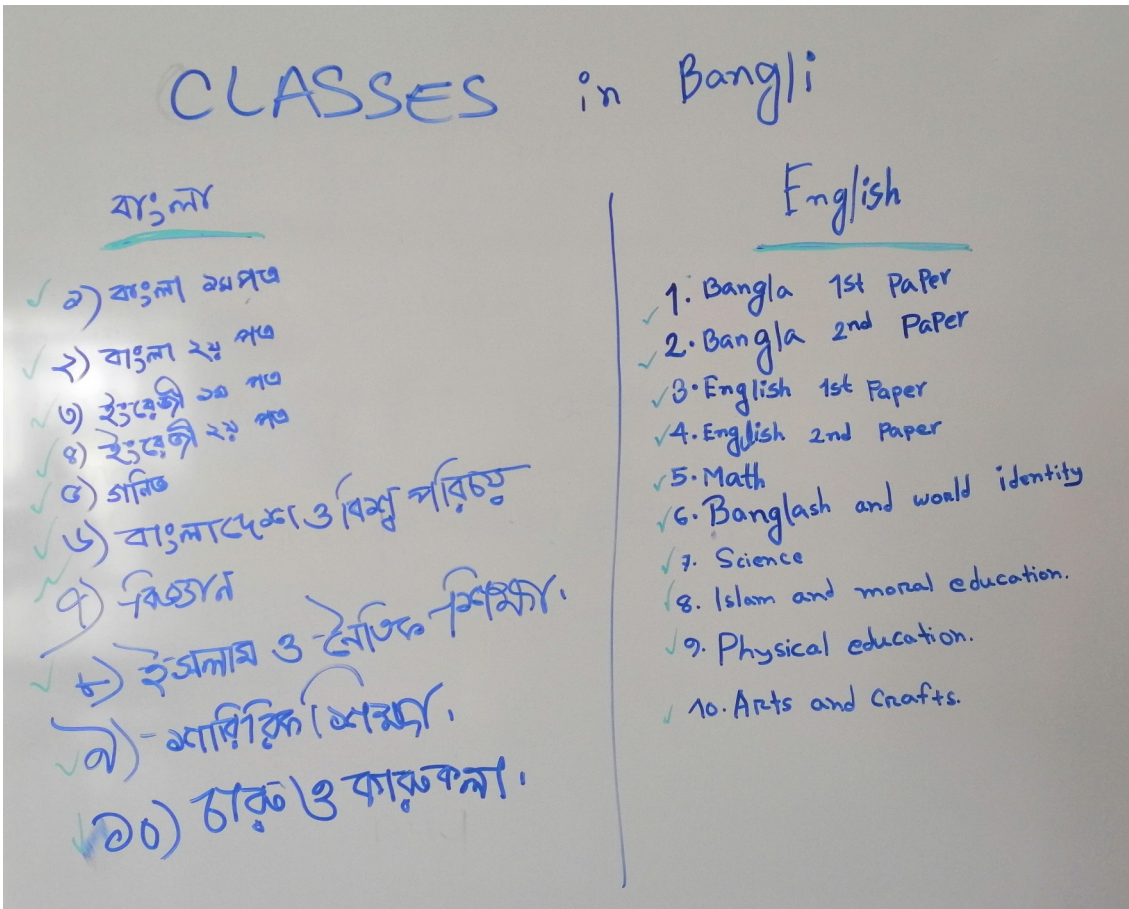 CLASSES in Bangli
বাংলা
১) বাংলা ১ম পত্র
২) বাংলা ২য় পত্র
৩) ইংরেজী ১ম পত্র
৪) ইংরেজী ২য় পত্র
৫) গনিত
৬) বাংলাদেশ ও বিশ্ব পরিচয়
৭) বিজ্ঞান
৮) ইসলাম ও নৈতিক শিক্ষা.
৯) শারিরিক শিক্ষা.
১০) চারু ও কারুকলা.
English
1. Bangla 1st Paper
2. Bangla 2nd Paper
3. English 1st Paper
4. English 2nd Paper
5. Math
6. Banglash and world identity
7. Science
8. Islam and moral education.
9. Physical education.
10. Arts and Crafts.